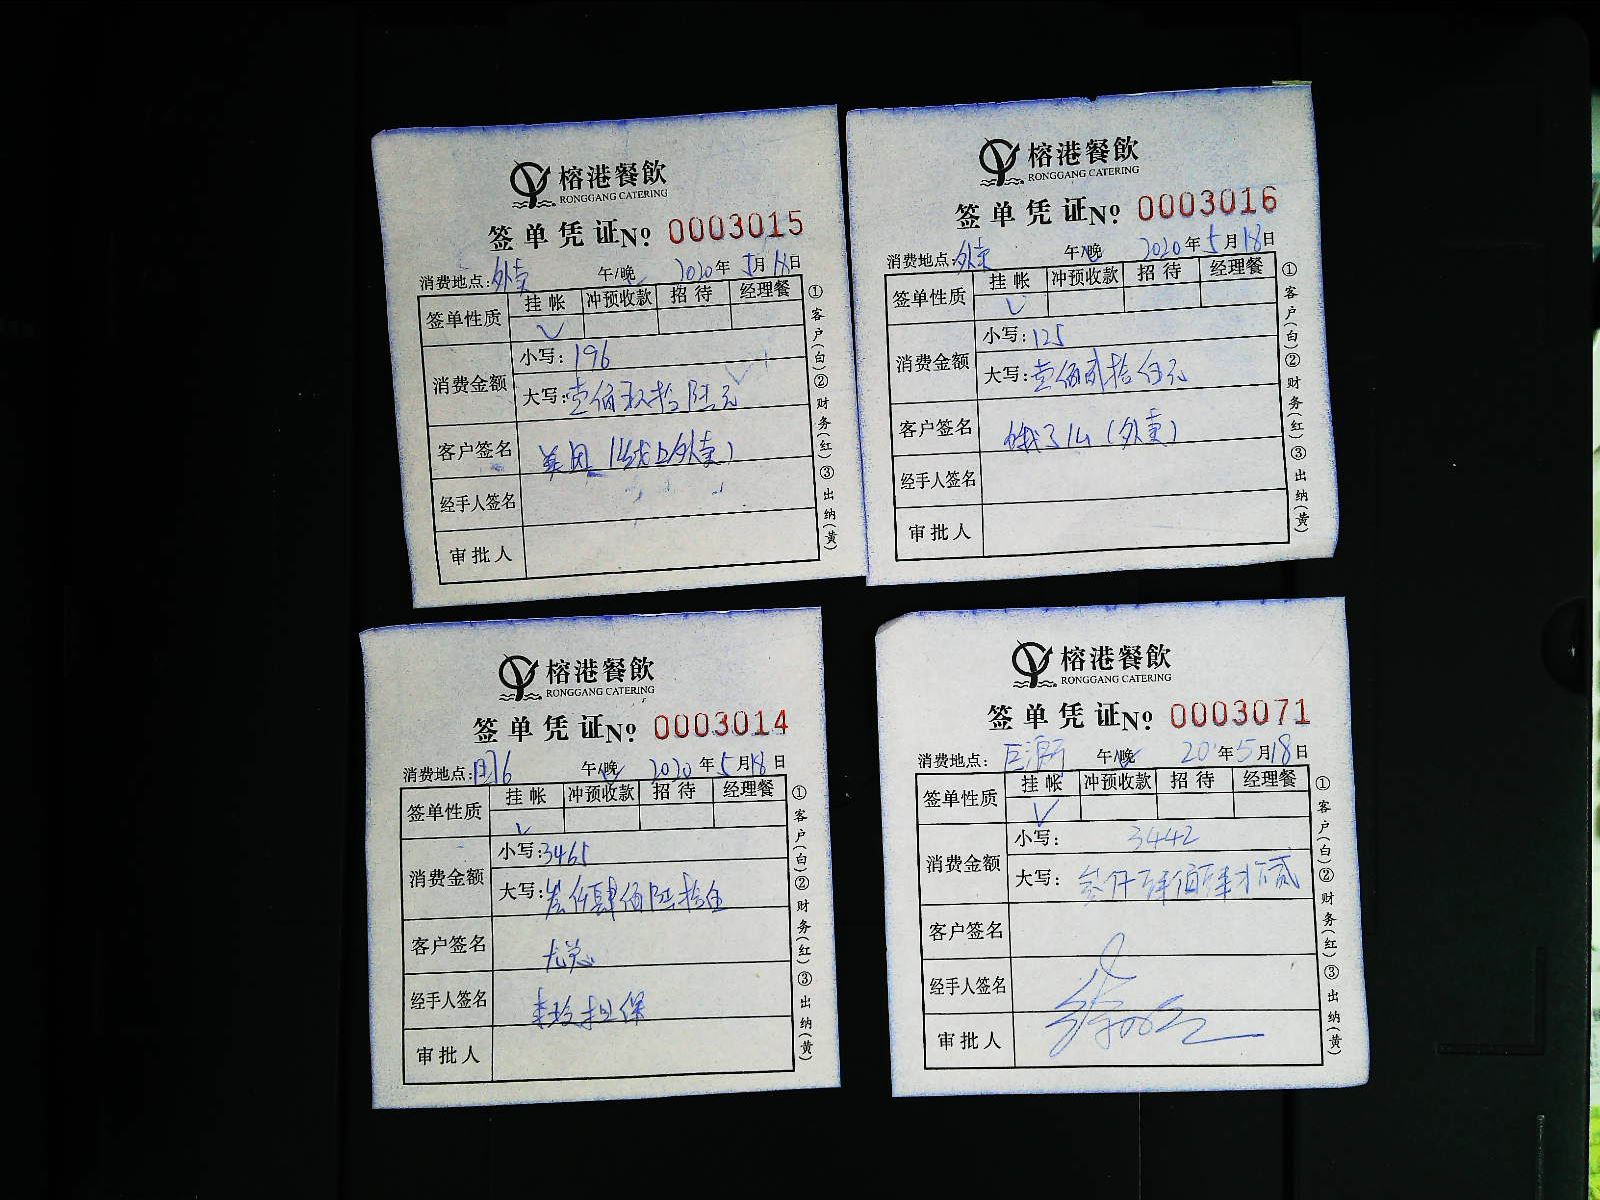 榕港餐飲
RONGGANG CATERING
签单凭证№ 0003015
消费地点:外卖 午/晚 2020年5月18日
签单性质 挂帐 冲预收款 招待 经理餐
消费金额 小写:196
大写:壹佰玖拾陆元
客户签名 美团(线上外卖)
经手人签名
审批人
①客户(白)②财务(红)③出纳(黄)
榕港餐飲
RONGGANG CATERING
签单凭证№ 0003016
消费地点:外卖 午/晚 2020年5月18日
签单性质 挂帐 冲预收款 招待 经理餐
消费金额 小写:125
大写:壹佰贰拾伍元
客户签名 饿了么(外卖)
经手人签名
审批人
①客户(白)②财务(红)③出纳(黄)
榕港餐飲
RONGGANG CATERING
签单凭证№ 0003014
消费地点: 午/晚 2020年5月18日
签单性质 挂帐 冲预收款 招待 经理餐
消费金额 小写:3465
大写:叁仟肆佰陆拾伍
客户签名 尤总
经手人签名 李玲担保
审批人
①客户(白)②财务(红)③出纳(黄)
榕港餐飲
RONGGANG CATERING
签单凭证№ 0003071
消费地点: 午/晚 20 年5月18日
签单性质 挂帐 冲预收款 招待 经理餐
消费金额 小写:3442
大写:叁仟肆佰肆拾贰
客户签名
经手人签名
审批人
①客户(白)②财务(红)③出纳(黄)